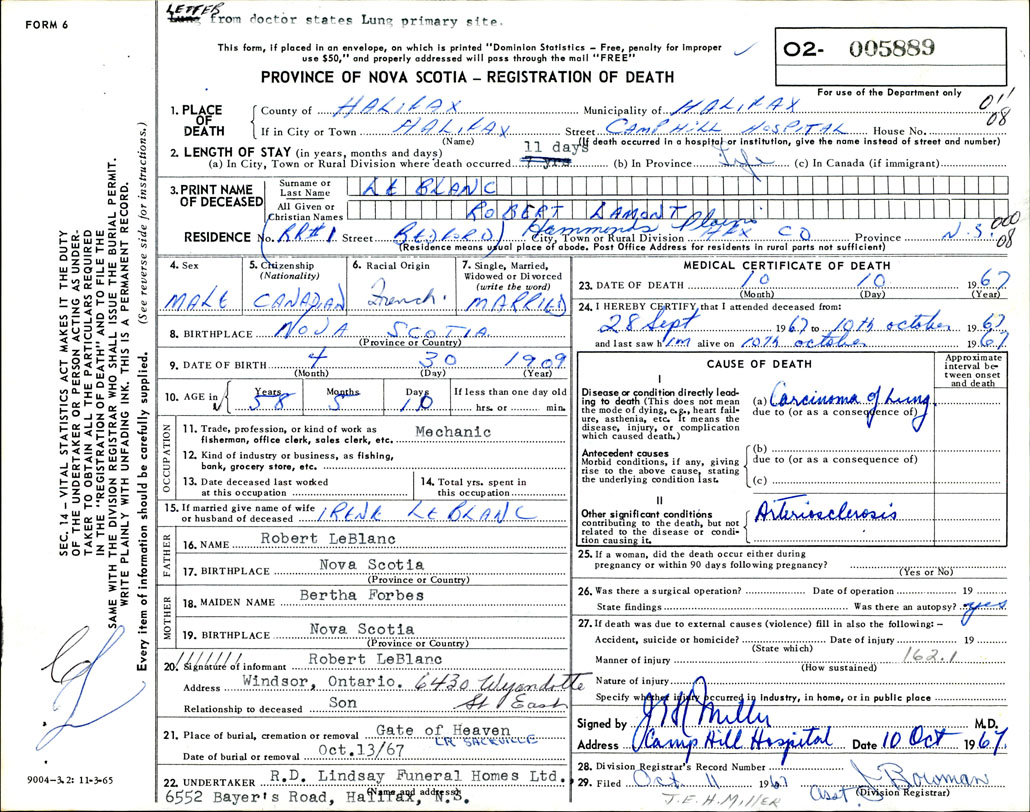 FORM 6
LETTER
Lung from doctor states Lung primary site.
This form, if placed in an envelope, on which is printed "Dominion Statistics – Free, penalty for improper
use $50," and properly addressed will pass through the mail "FREE"
PROVINCE OF NOVA SCOTIA – REGISTRATION OF DEATH
O2- 005889
For use of the Department only
011
08
1. PLACE OF DEATH
County of HALIFAX Municipality of HALIFAX
If in City or Town HALIFAX Street CAMP HILL HOSPITAL House No.
(Name) (If death occurred in a hospital or institution, give the name instead of street and number)
2. LENGTH OF STAY (in years, months and days) 11 days
(a) In City, Town or Rural Division where death occurred (b) In Province Life (c) In Canada (if immigrant)
3. PRINT NAME OF DECEASED
Surname or Last Name LE BLANC
All Given or Christian Names ROBERT LAMONT
Hammonds Plains
000
08
RESIDENCE No. RR#1 Street BEDFORD City, Town or Rural Division HFX CO Province N.S.
(Residence means usual place of abode. Post Office Address for residents in rural parts not sufficient)
4. Sex
MALE
5. Citizenship
(Nationality)
CANADIAN
6. Racial Origin
French.
7. Single, Married,
Widowed or Divorced
(write the word)
MARRIED
8. BIRTHPLACE NOVA SCOTIA
(Province or Country)
9. DATE OF BIRTH 4 30 1909
(Month) (Day) (Year)
10. AGE in
Years 58
Months 5
Days 10
If less than one day old
hrs. or min.
OCCUPATION
11. Trade, profession, or kind of work as
fisherman, office clerk, sales clerk, etc. Mechanic
12. Kind of industry or business, as fishing,
bank, grocery store, etc.
13. Date deceased last worked
at this occupation
14. Total yrs. spent in
this occupation
15. If married give name of wife
or husband of deceased IRENE LE BLANC
FATHER
16. NAME Robert LeBlanc
17. BIRTHPLACE Nova Scotia
(Province or Country)
MOTHER
18. MAIDEN NAME Bertha Forbes
19. BIRTHPLACE Nova Scotia
(Province or Country)
20. Signature of informant Robert LeBlanc
Address Windsor, Ontario. 6430 Wyandotte
St East
Relationship to deceased Son
21. Place of burial, cremation or removal Gate of Heaven
LR SACKVILLE
Date of burial or removal Oct.13/67
22. UNDERTAKER R.D. Lindsay Funeral Homes Ltd.
(Name and address)
6552 Bayer's Road, Halifax, N.S.
MEDICAL CERTIFICATE OF DEATH
23. DATE OF DEATH 10 10 1967
(Month) (Day) (Year)
24. I HEREBY CERTIFY that I attended deceased from:
28 Sept 1967 to 10th october 1967
and last saw him alive on 10th october 1967
CAUSE OF DEATH
Approximate
interval be-
tween onset
and death
I
Disease or condition directly lead-
ing to death (This does not mean
the mode of dying, e.g., heart fail-
ure, asthenia, etc. It means the
disease, injury, or complication
which caused death.)
(a) Carcinoma of Lung
due to (or as a consequence of)
Antecedent causes
Morbid conditions, if any, giving
rise to the above cause, stating
the underlying condition last.
(b)
due to (or as a consequence of)
(c)
II
Other significant conditions
contributing to the death, but not
related to the disease or condi-
tion causing it.
Arteriosclerosis
25. If a woman, did the death occur either during
pregnancy or within 90 days following pregnancy?
(Yes or No)
26. Was there a surgical operation? Date of operation 19
State findings Was there an autopsy? yes
27. If death was due to external causes (violence) fill in also the following: –
Accident, suicide or homicide? Date of injury 19
(State which)
162.1
Manner of injury
(How sustained)
Nature of injury
Specify whether injury occurred in Industry, in home, or in public place
Signed by J E H Miller M.D.
Address Camp Hill Hospital Date 10 Oct 1967
28. Division Registrar's Record Number
29. Filed Oct 11 1967 Asst. J Bowman
(Division Registrar)
J.E.H. MILLER
SEC. 14 – VITAL STATISTICS ACT MAKES IT THE DUTY
OF THE UNDERTAKER OR PERSON ACTING AS UNDER-
TAKER TO OBTAIN ALL THE PARTICULARS REQUIRED
IN THE "REGISTRATION OF DEATH" AND TO FILE THE
SAME WITH THE DIVISION REGISTRAR WHO SHALL ISSUE THE BURIAL PERMIT.
WRITE PLAINLY WITH UNFADING INK. THIS IS A PERMANENT RECORD.
Every item of information should be carefully supplied. (See reverse side for instructions.)
9004-3.2: 11-3-65